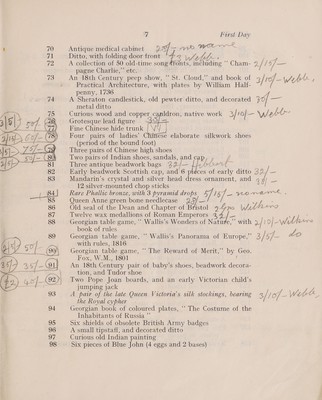 7 First Day
70 Antique medical cabinet 20/- no name
71 Ditto, with folding door front Webb.
72 A collection of 50 old-time song fronts, including "Cham- 2/15/-
pagne Charlie," etc.
73 An 18th Century peep show, "St. Cloud," and book of 2/10/- Webb.
Practical Architecture, with plates by William Half-
penny, 1736
74 A Sheraton candlestick, old pewter ditto, and decorated 30/-
metal ditto
75 Curious wood and copper cauldron, native work 3/10/- Webb
76 Grotesque lead figure
77 Fine Chinese hide trunk
78 Four pairs of ladies' Chinese elaborate silkwork shoes
(period of the bound foot)
79 Three pairs of Chinese high shoes
80 Two pairs of Indian shoes, sandals, and cap
81 Three antique beadwork bags 22/- Hibbert
82 Early beadwork Scottish cap, and 6 pieces of early ditto 32/-
83 Mandarin's crystal and silver head dress ornament, and
12 silver-mounted chop sticks
84 Rare Phallic bronze, with 3 pyramid drops 5/15/- no name.
85 Queen Anne green bone needlecase
86 Old seal of the Dean and Chapter of Bristol Wilkins
87 Twelve wax medallions of Roman Emperors
88 Georgian table game, "Wallis's Wonders of Nature," with 2/12/- Wilkins
book of rules
89 Georgian table game, "Wallis's Panorama of Europe," 3/5/- do
with rules, 1816
90 Georgian table game, "The Reward of Merit," by Geo.
Fox, W.M., 1801
91 An 18th Century pair of baby's shoes, beadwork decora-
tion, and Tudor shoe
92 Two Pope Joan boards, and an early Victorian child's
jumping jack
93 A pair of the late Queen Victoria's silk stockings, bearing 3/10/- Webb.
the Royal cypher
94 Georgian book of coloured plates, "The Costume of the
Inhabitants of Russia"
95 Six shields of obsolete British Army badges
96 A small tipstaff, and decorated ditto
97 Curious old Indian painting
98 Six pieces of Blue John (4 eggs and 2 bases)